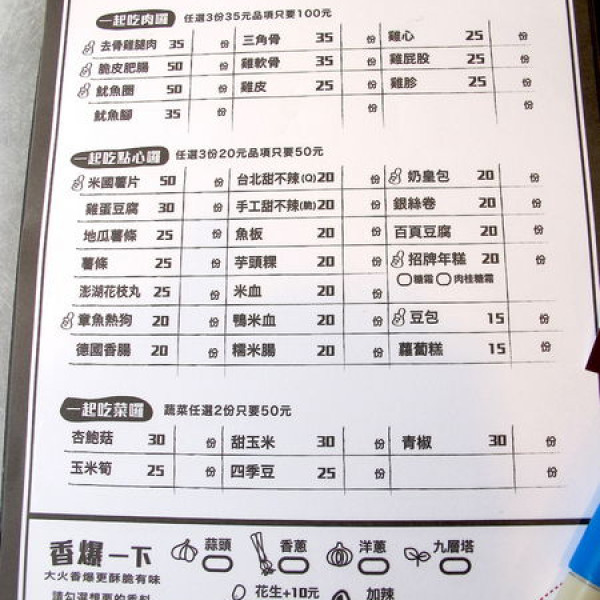 一起吃肉囉 任選3份35元品項只要100元
去骨雞腿肉 35 份 三角骨 35 份 雞心 25 份
脆皮肥腸 50 份 雞軟骨 35 份 雞屁股 25 份
魷魚圈 50 份 雞皮 25 份 雞胗 25 份
魷魚腳 35 份 份 份
一起吃點心囉 任選3份20元品項只要50元
米國薯片 50 份 台北甜不辣(Q) 20 份 奶皇包 20 份
雞蛋豆腐 30 份 手工甜不辣(脆) 20 份 銀絲卷 20 份
地瓜薯條 25 份 魚板 20 份 百頁豆腐 20 份
薯條 25 份 芋頭粿 20 份 招牌年糕 20 份
糖霜 肉桂糖霜
澎湖花枝丸 25 份 米血 20 份
章魚熱狗 20 份 鴨米血 20 份 豆包 15 份
德國香腸 20 份 糯米腸 20 份 蘿蔔糕 15 份
一起吃菜囉 蔬菜任選2份只要50元
杏鮑菇 30 份 甜玉米 30 份 青椒 30 份
玉米筍 25 份 四季豆 25 份 份
香爆一下 蒜頭 香蔥 洋蔥 九層塔
大火香爆更酥脆有味
請勾選想要的香料 花生+10元 加辣